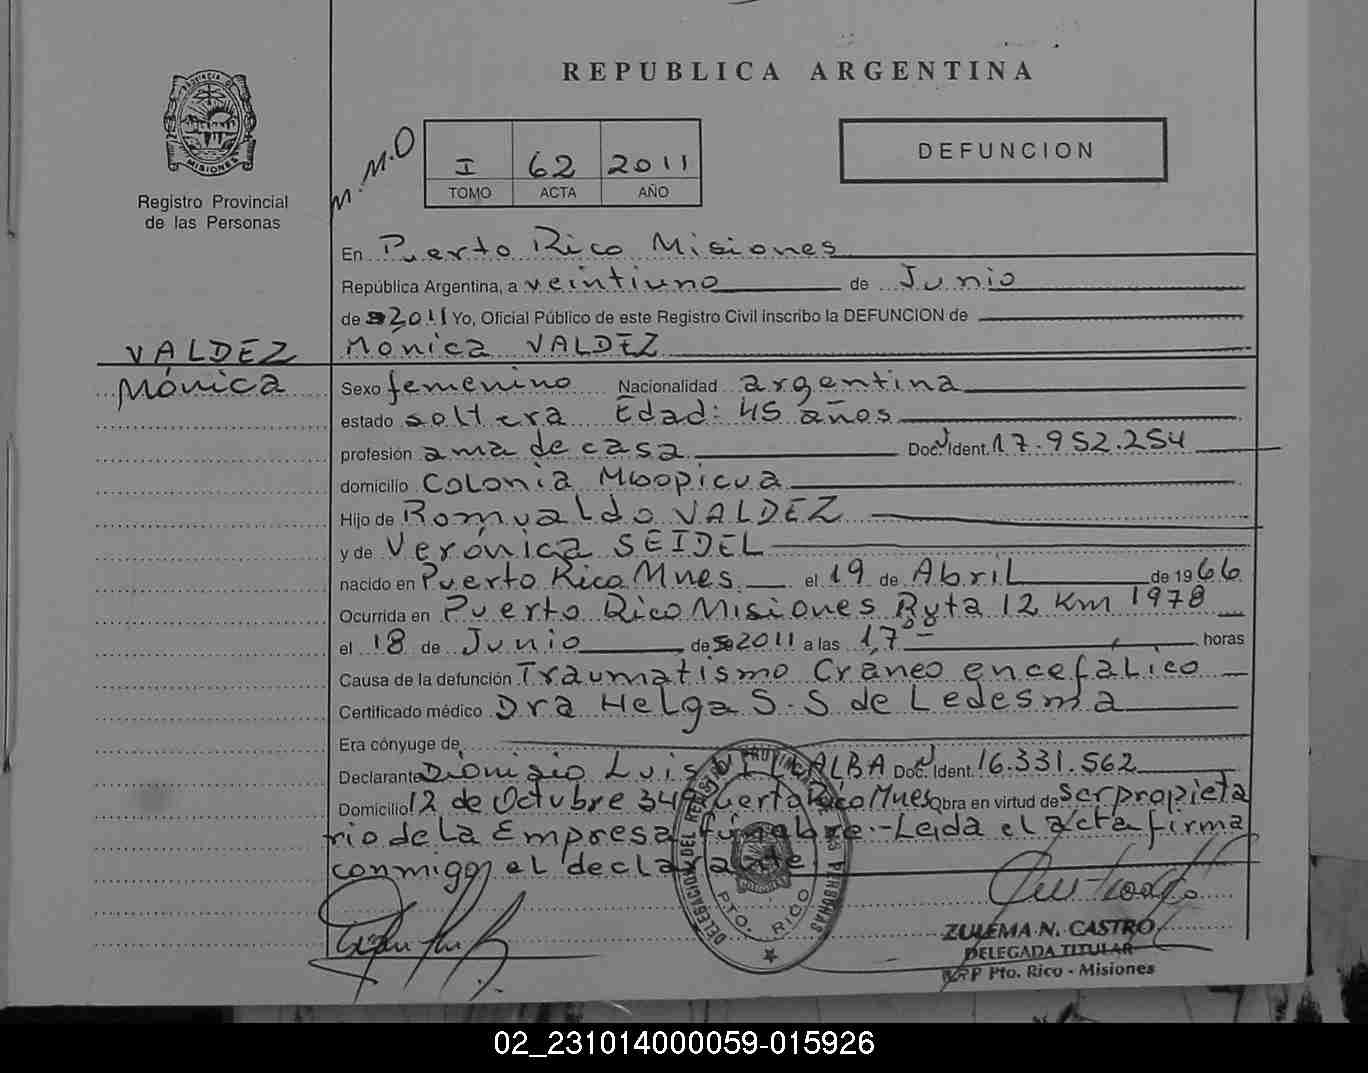 REPUBLICA ARGENTINA
PROVINCIA D MISIONES
Registro Provincial
de las Personas
M.M.O
I 62 2011
TOMO ACTA AÑO
DEFUNCION
En Puerto Rico Misiones
República Argentina, a veintiuno de Junio
de 2011 Yo, Oficial Público de este Registro Civil inscribo la DEFUNCION de
VALDEZ
Mónica
Mónica VALDEZ
Sexo femenino Nacionalidad argentina
estado soltera Edad: 45 años
profesión ama de casa Doc. Ident. 17.952.254
domicilio Colonia Mbopicua
Hijo de Romualdo VALDEZ
y de Verónica SEIDEL
nacido en Puerto Rico Mnes el 19 de Abril de 1966
Ocurrida en Puerto Rico Misiones Ruta 12 Km 1978
el 18 de Junio de 2011 a las 17,00 horas
Causa de la defunción Traumatismo Craneo encefálico
Certificado médico Dra Helga S. S de Ledesma
Era cónyuge de
Declarante Dionisio Luis VILLALBA Doc. Ident. 16.331.562
Domicilio 12 de Octubre 349 Puerto Rico Mnes Obra en virtud de ser propieta
rio de la Empresa fúnebre.- Leida el acta firma
conmigo el declarante
DELEGACION DEL REGISTRO PROVINCIAL DE LAS PERSONAS
PTO. RICO
ZULEMA N. CASTRO
DELEGADA TITULAR
RPP Pto. Rico - Misiones
02_231014000059-015926